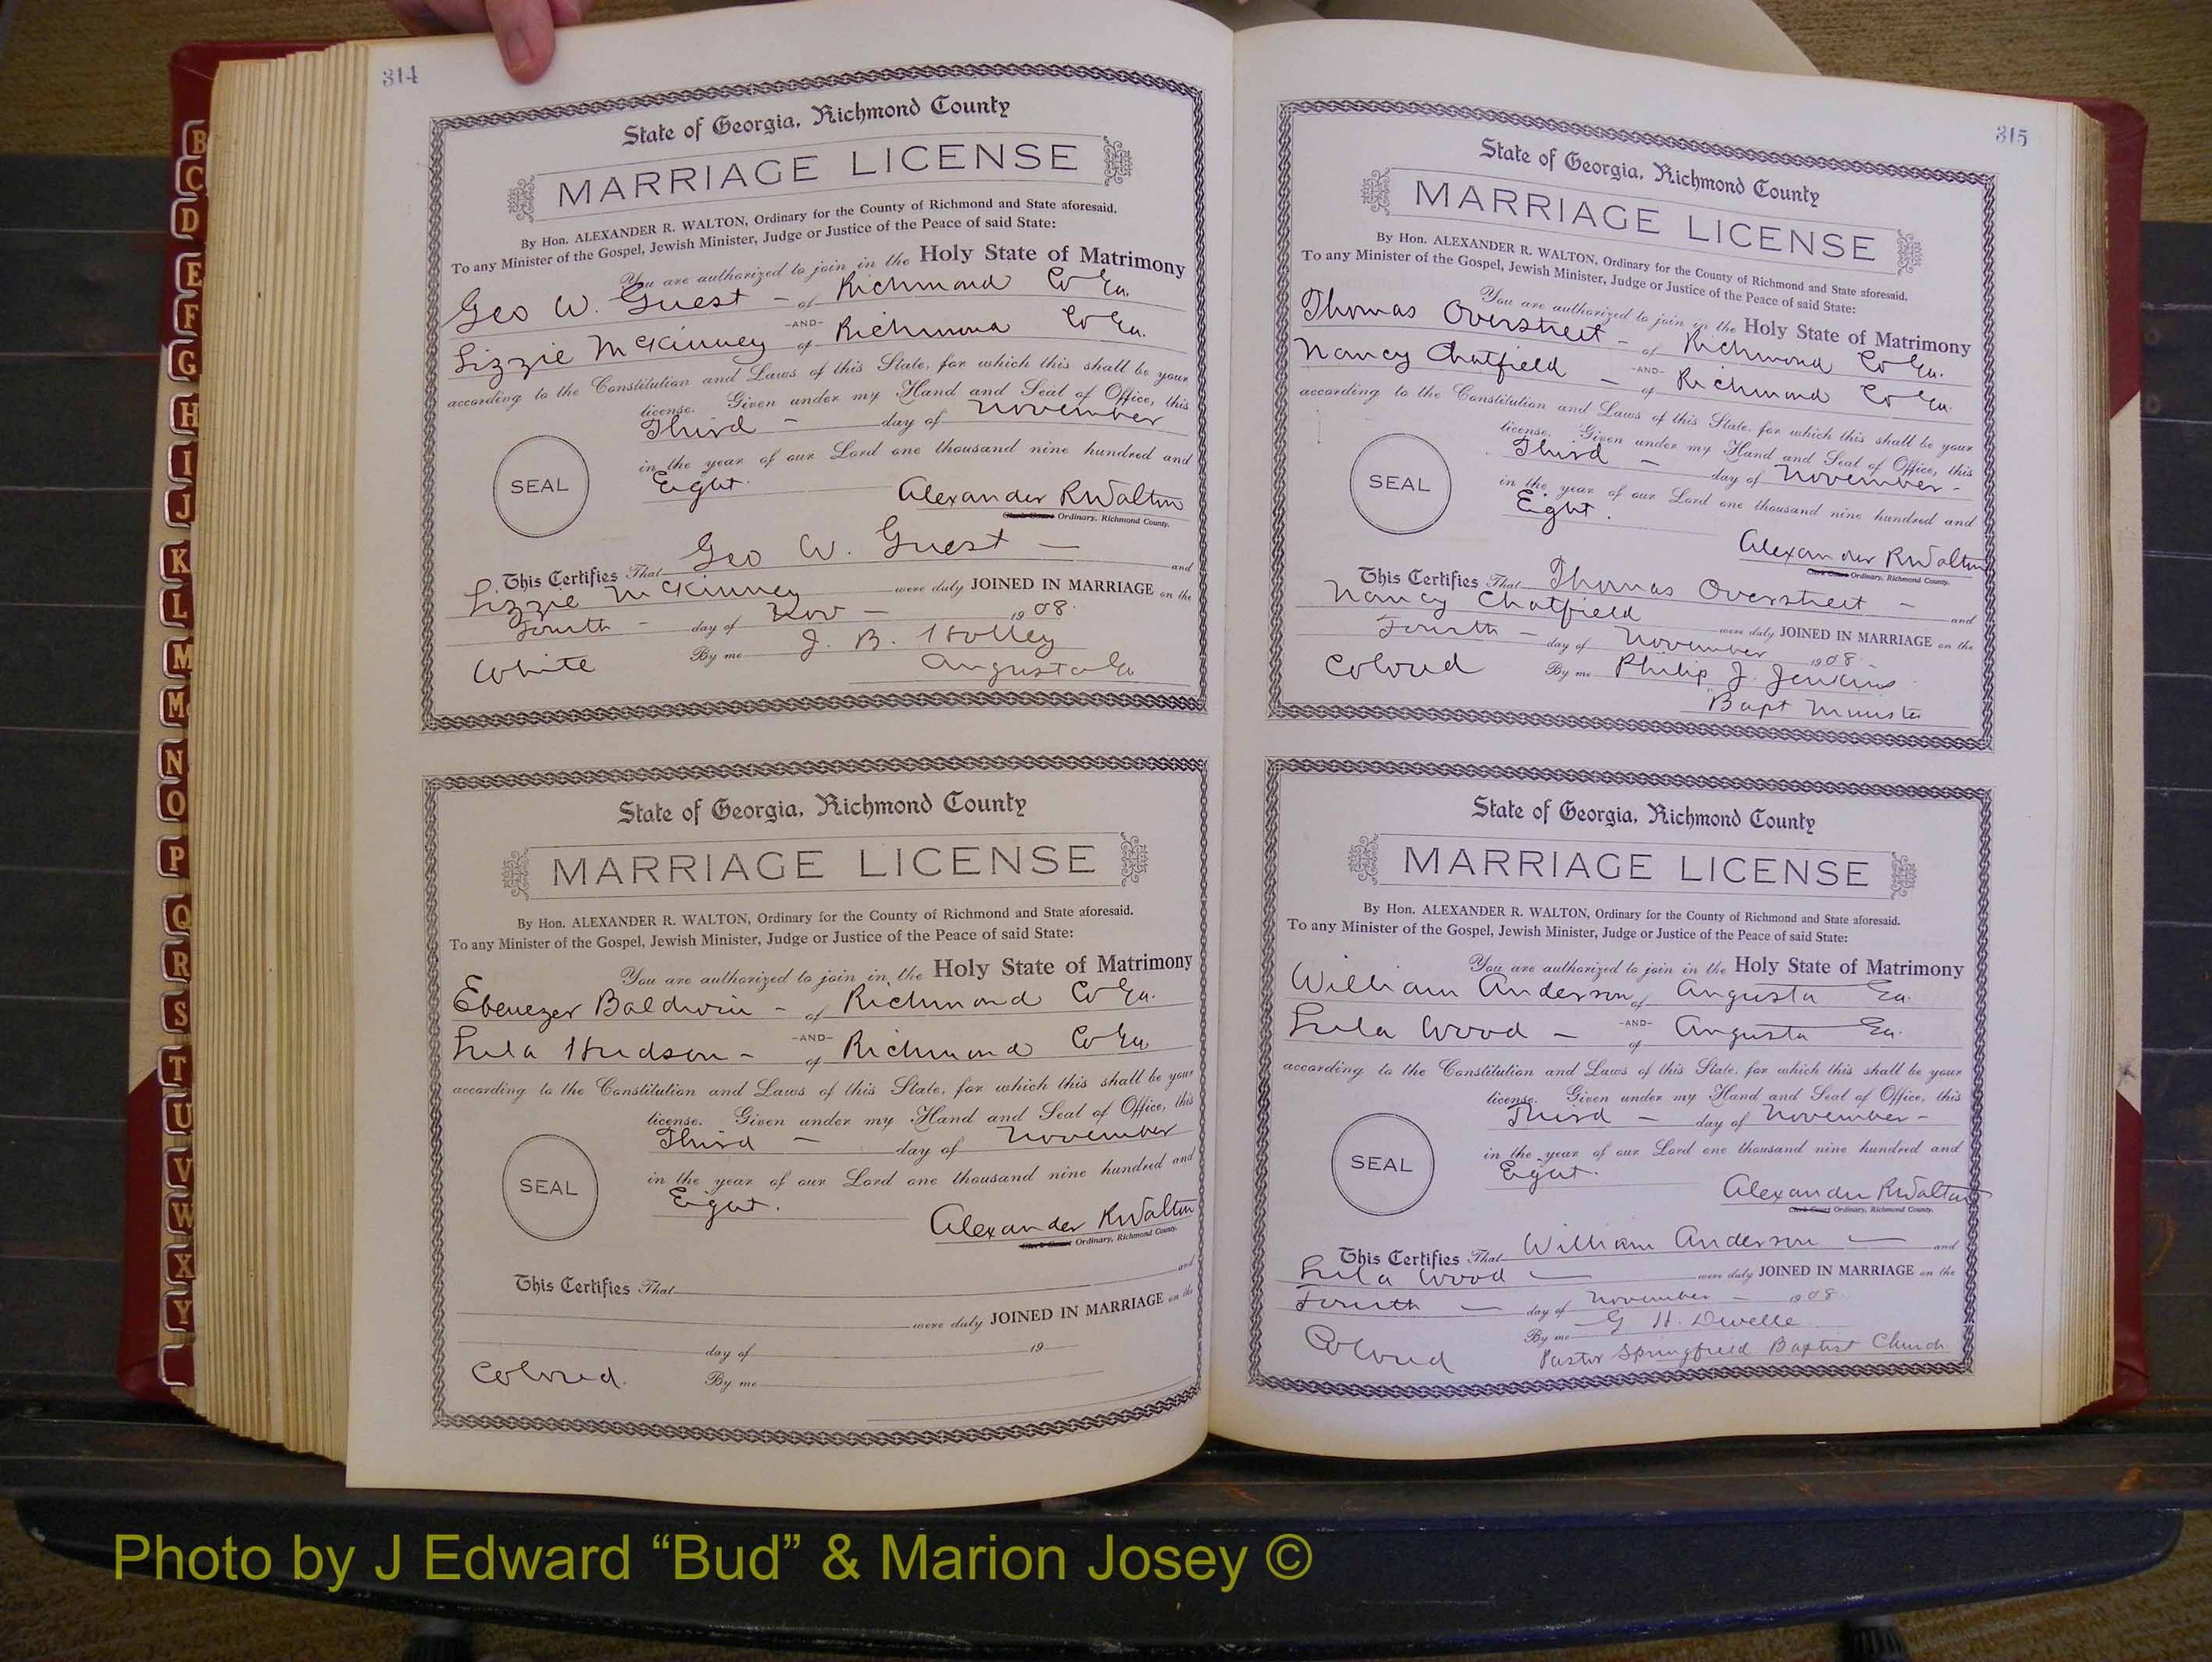 B
C
D
E
F
G
H
I
J
K
L
M
Mc
N
O
P
Q
R
S
T
U
V
W
X
Y
314
State of Georgia, Richmond County
MARRIAGE LICENSE
By Hon. ALEXANDER R. WALTON, Ordinary for the County of Richmond and State aforesaid.
To any Minister of the Gospel, Jewish Minister, Judge or Justice of the Peace of said State:
You are authorized to join in the Holy State of Matrimony
Geo W. Guest - of Richmond Co Ga.
-AND-
Lizzie McKinney of Richmond Co Ga.
according to the Constitution and Laws of this State, for which this shall be your
license. Given under my Hand and Seal of Office, this
Third - day of November
in the year of our Lord one thousand nine hundred and
SEAL
Eight.
Alexander R Walton
Clerk Court Ordinary, Richmond County.
This Certifies That Geo W. Guest - and
Lizzie McKinney were duly JOINED IN MARRIAGE on the
Fourth - day of Nov - 1908.
White By me J. B. Holley
Augusta Ga
State of Georgia, Richmond County
MARRIAGE LICENSE
By Hon. ALEXANDER R. WALTON, Ordinary for the County of Richmond and State aforesaid.
To any Minister of the Gospel, Jewish Minister, Judge or Justice of the Peace of said State:
You are authorized to join in the Holy State of Matrimony
Ebenezer Baldwin - of Richmond Co Ga.
-AND-
Lula Hudson - of Richmond Co Ga
according to the Constitution and Laws of this State, for which this shall be your
license. Given under my Hand and Seal of Office, this
Third - day of November
in the year of our Lord one thousand nine hundred and
SEAL
Eight.
Alexander R Walton
Clerk Court Ordinary, Richmond County.
This Certifies That and
were duly JOINED IN MARRIAGE on the
day of 19
Colored. By me
315
State of Georgia, Richmond County
MARRIAGE LICENSE
By Hon. ALEXANDER R. WALTON, Ordinary for the County of Richmond and State aforesaid.
To any Minister of the Gospel, Jewish Minister, Judge or Justice of the Peace of said State:
You are authorized to join in the Holy State of Matrimony
Thomas Overstreet - of Richmond Co Ga.
-AND-
Nancy Chatfield - of Richmond Co Ga.
according to the Constitution and Laws of this State, for which this shall be your
license. Given under my Hand and Seal of Office, this
Third - day of November -
in the year of our Lord one thousand nine hundred and
SEAL
Eight.
Alexander R Walton
Clerk Court Ordinary, Richmond County.
This Certifies That Thomas Overstreet - and
Nancy Chatfield were duly JOINED IN MARRIAGE on the
Fourth - day of November 1908 -
Colored By me Philip J. Jenkins
Bapt Minister
State of Georgia, Richmond County
MARRIAGE LICENSE
By Hon. ALEXANDER R. WALTON, Ordinary for the County of Richmond and State aforesaid.
To any Minister of the Gospel, Jewish Minister, Judge or Justice of the Peace of said State:
You are authorized to join in the Holy State of Matrimony
William Anderson of Augusta Ga.
-AND-
Lula Wood - of Augusta Ga.
according to the Constitution and Laws of this State, for which this shall be your
license. Given under my Hand and Seal of Office, this
Third - day of November -
in the year of our Lord one thousand nine hundred and
SEAL
Eight.
Alexander R Walton
Clerk Court Ordinary, Richmond County.
This Certifies That William Anderson - and
Lula Wood - were duly JOINED IN MARRIAGE on the
Fourth - day of November - 1908
By me G H. Dwelle
Colored Pastor Springfield Baptist Church
Photo by J Edward “Bud” & Marion Josey ©